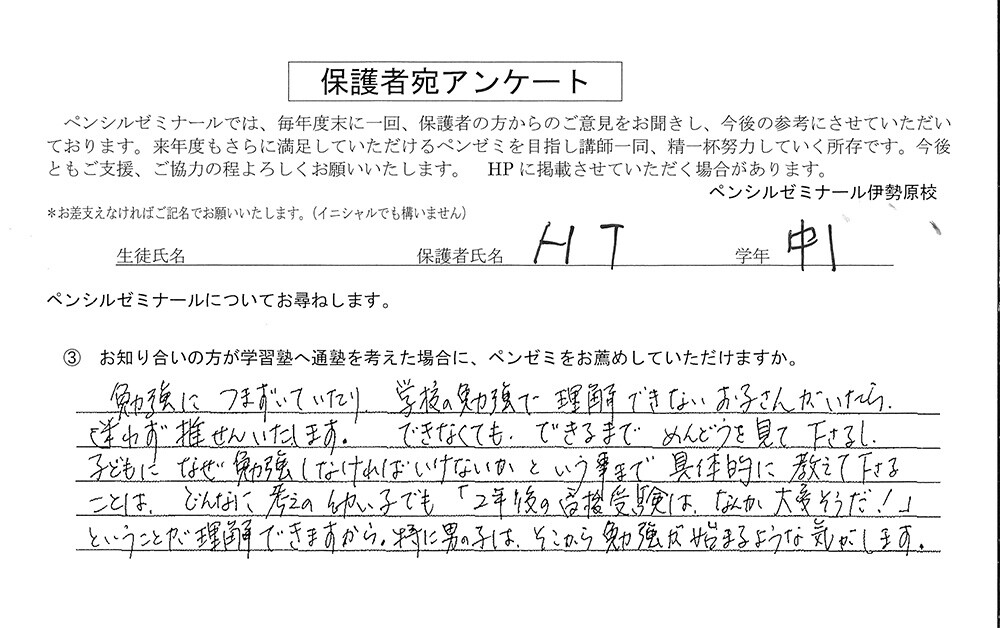 保護者宛アンケート
ペンシルゼミナールでは、毎年度末に一回、保護者の方からのご意見をお聞きし、今後の参考にさせていただい
ております。来年度もさらに満足していただけるペンゼミを目指し講師一同、精一杯努力していく所存です。今後
ともご支援、ご協力の程よろしくお願いいたします。　HPに掲載させていただく場合があります。
ペンシルゼミナール伊勢原校
＊お差支えなければご記名でお願いいたします。（イニシャルでも構いません）
生徒氏名　保護者氏名　HT　学年　中1
ペンシルゼミナールについてお尋ねします。
③　お知り合いの方が学習塾へ通塾を考えた場合に、ペンゼミをお薦めしていただけますか。
勉強に つまずいていたり、学校の勉強で 理解できない お子さんがいたら、
迷わず 推せんいたします。 できなくても、できるまで めんどうを見て 下さるし、
子どもに なぜ 勉強しなければいけないか という事まで 具体的に 教えて下さる
ことは、どんなに 考えの 幼い子でも 「2年後の高校受験は、なんか 大変そうだ！」
ということが理解できますから。特に男の子は、そこから 勉強が 始まるような 気がします。